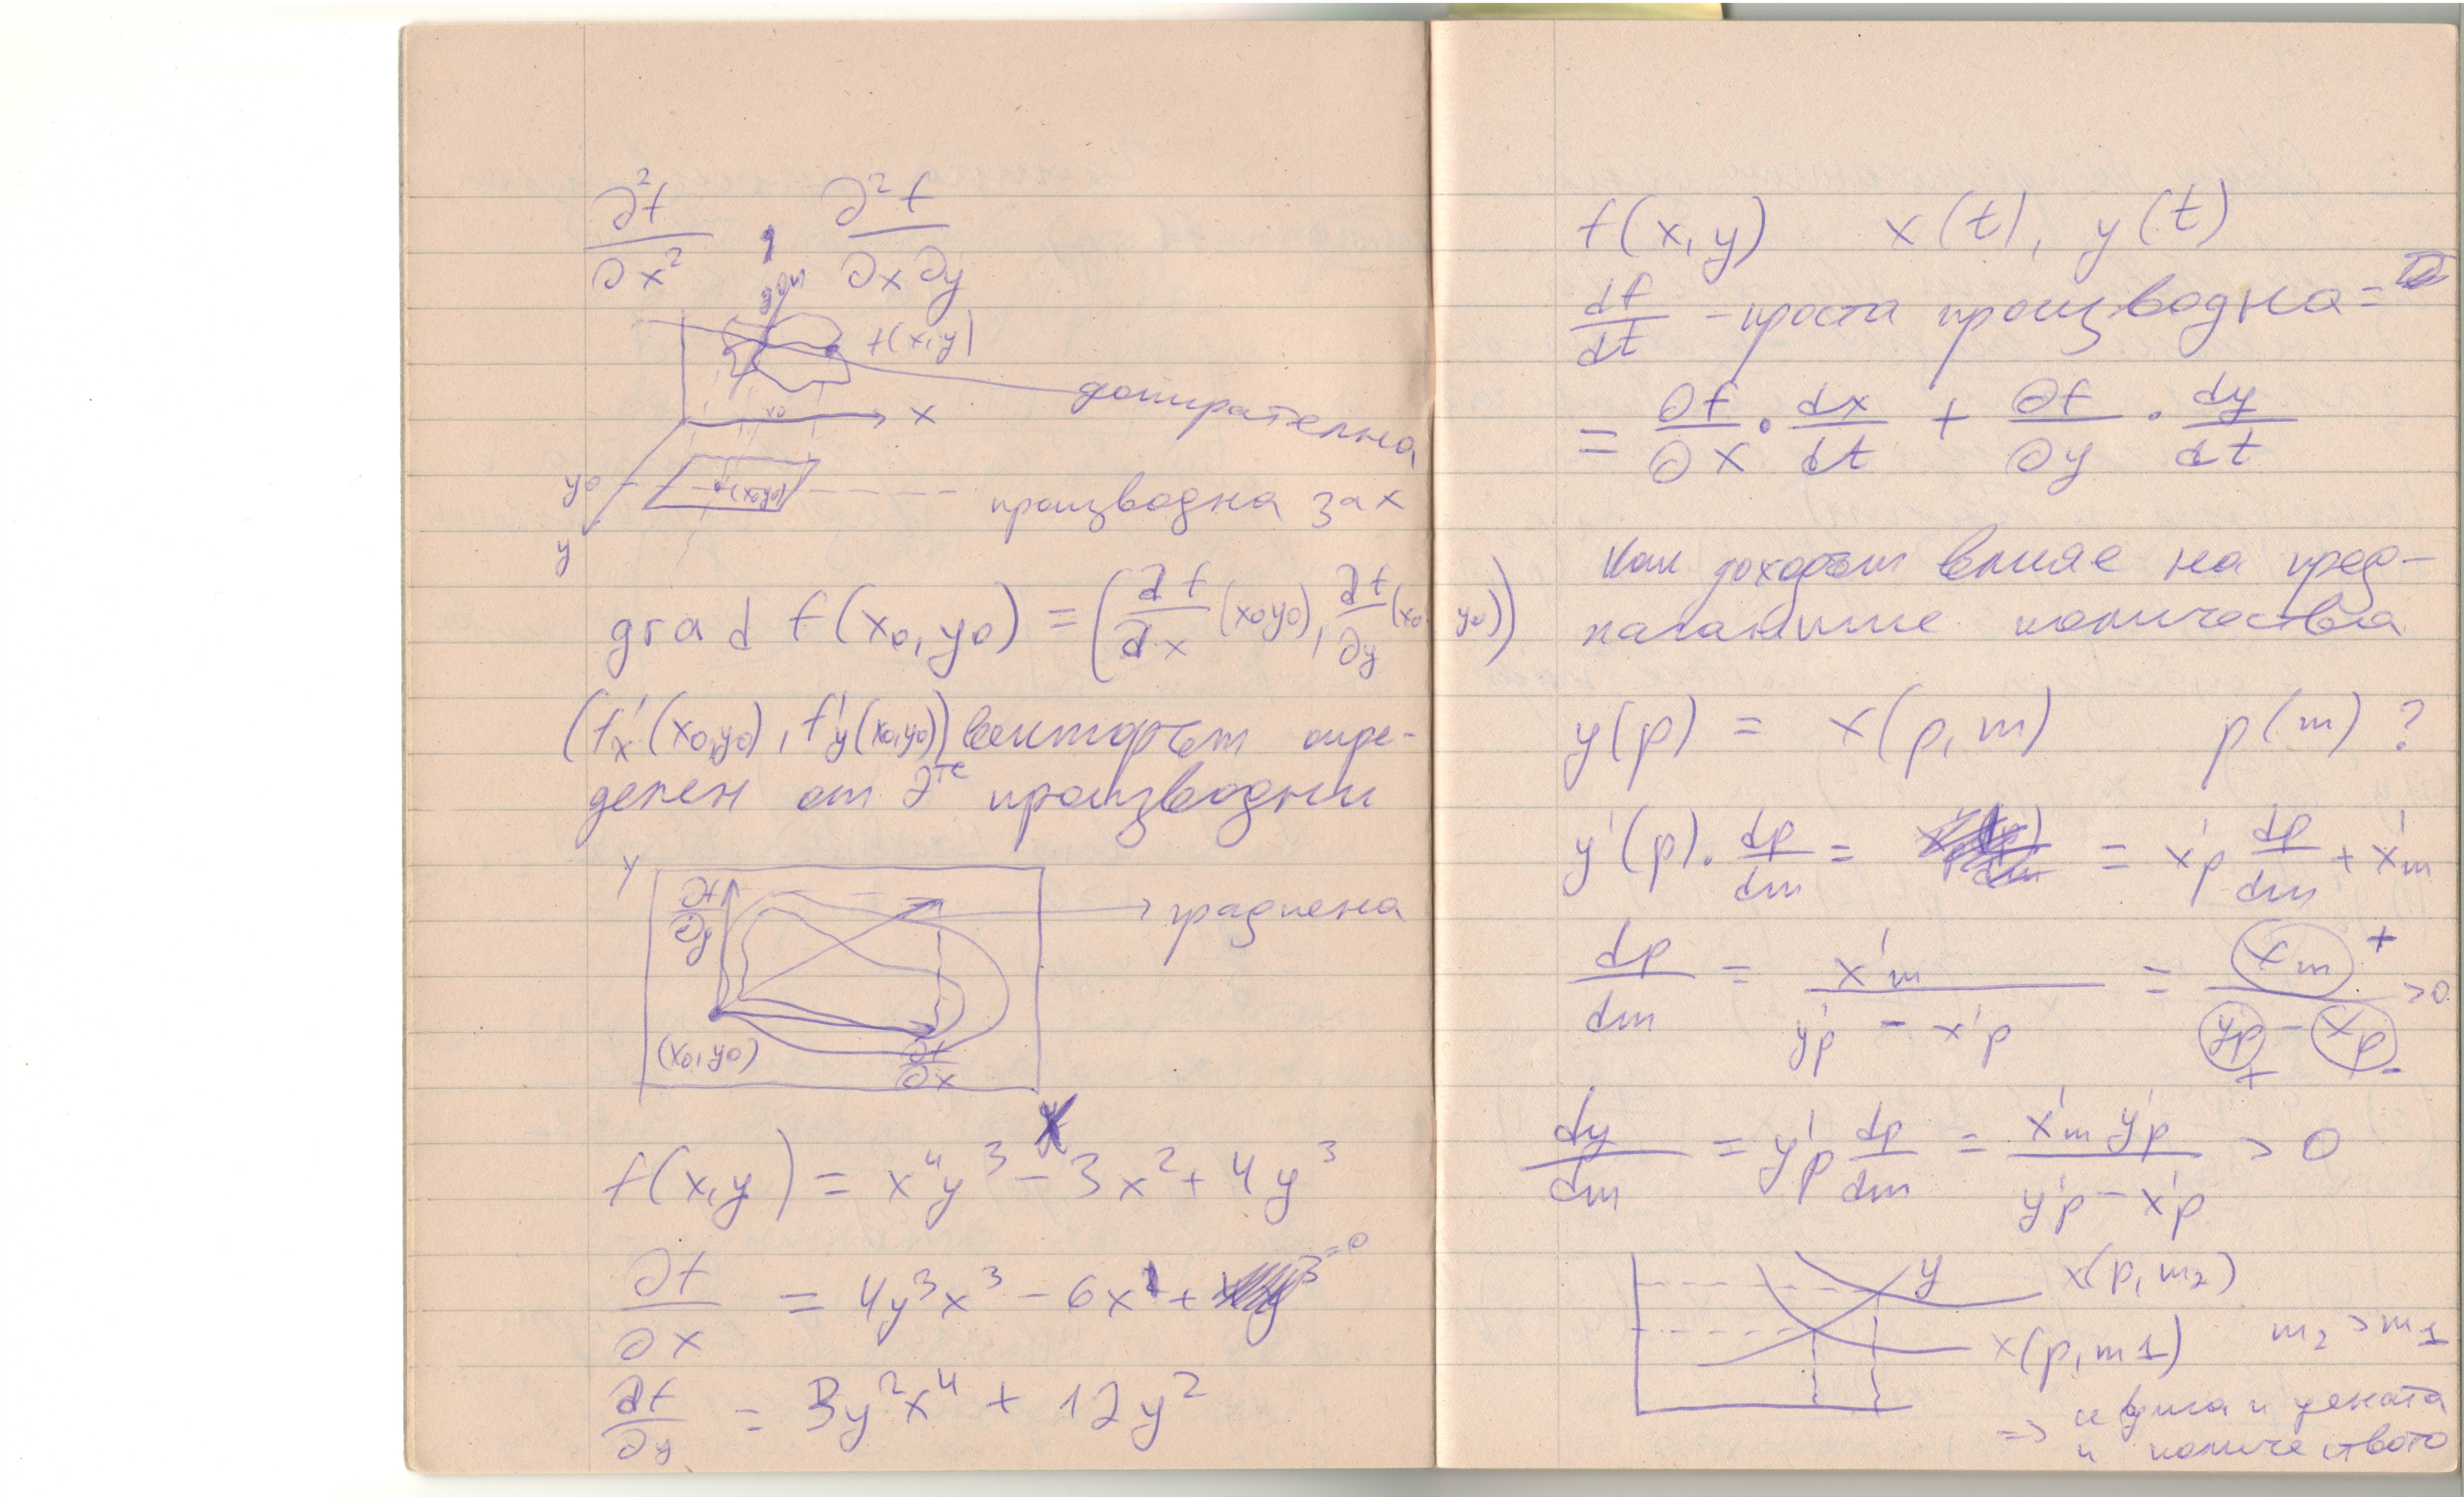 ∂²f/∂x² , ∂²f/∂x∂y
f(x,y)
допирателна
x0
x
y0
(x0y0)
производна за x
y
grad f(x0,y0) = (∂f/∂x (x0y0), ∂f/∂y (x0 y0))
(f'x(x0,y0), f'y(x0,y0)) векторът опре-
делен от 2те производни
y
∂f/∂y
градиента
(x0,y0)
∂f/∂x
x
f(x,y) = x⁴y³ - 3x² + 4y³
∂f/∂x = 4y³x³ - 6x¹ + =0
∂f/∂y = 3y²x⁴ + 12y²
f(x,y) x(t), y(t)
df/dt - проста производна =
= ∂f/∂x · dx/dt + ∂f/∂y · dy/dt
Как доходът влияе на пред-
лаганите количества
y(p) = x(p,m) p(m) ?
y'(p). dp/dm = = x'p dp/dm + x'm
dp/dm = x'm / (y'p - x'p) = xm + / (yp + - xp -) >0
dy/dm = y'p dp/dm = x'm y'p / (y'p - x'p) > 0
y
x(p,m2)
x(p,m1)
m2 > m1
=> и цената
и количеството